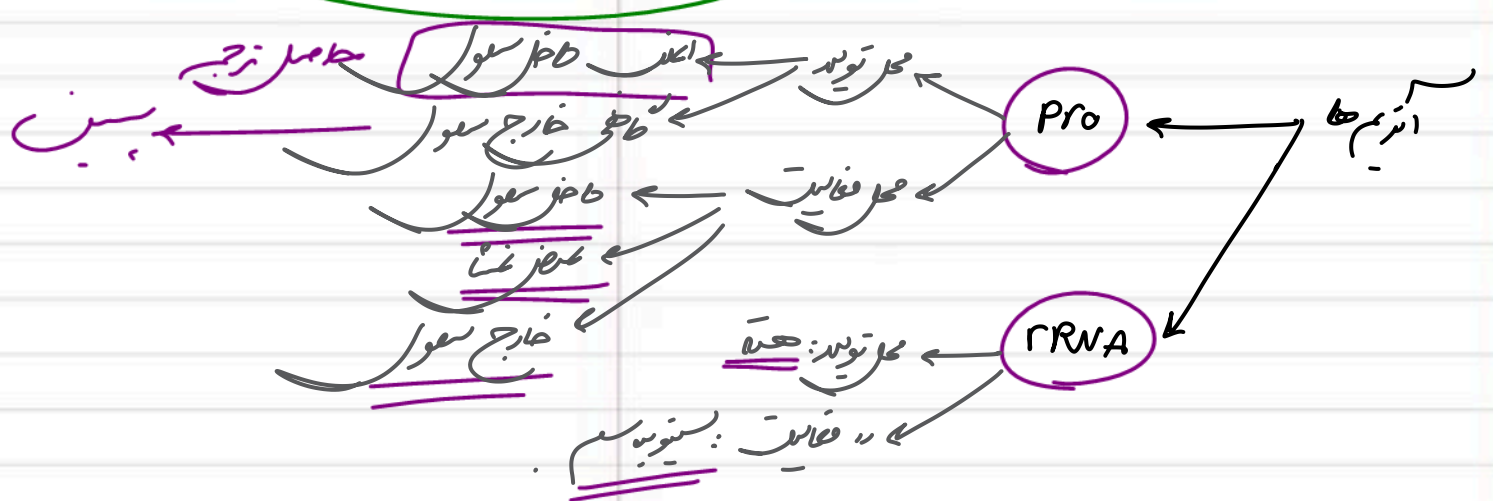 آنزیم‌ها
pro
محل تولید
اغلب داخل سلول
حاصل ترجمه
گاهی خارج سلول
پپسین
محل فعالیت
داخل سلول
عرض غشا
خارج سلول
rRNA
محل تولید: هسته
〃 فعالیت: سیتوپلاسم